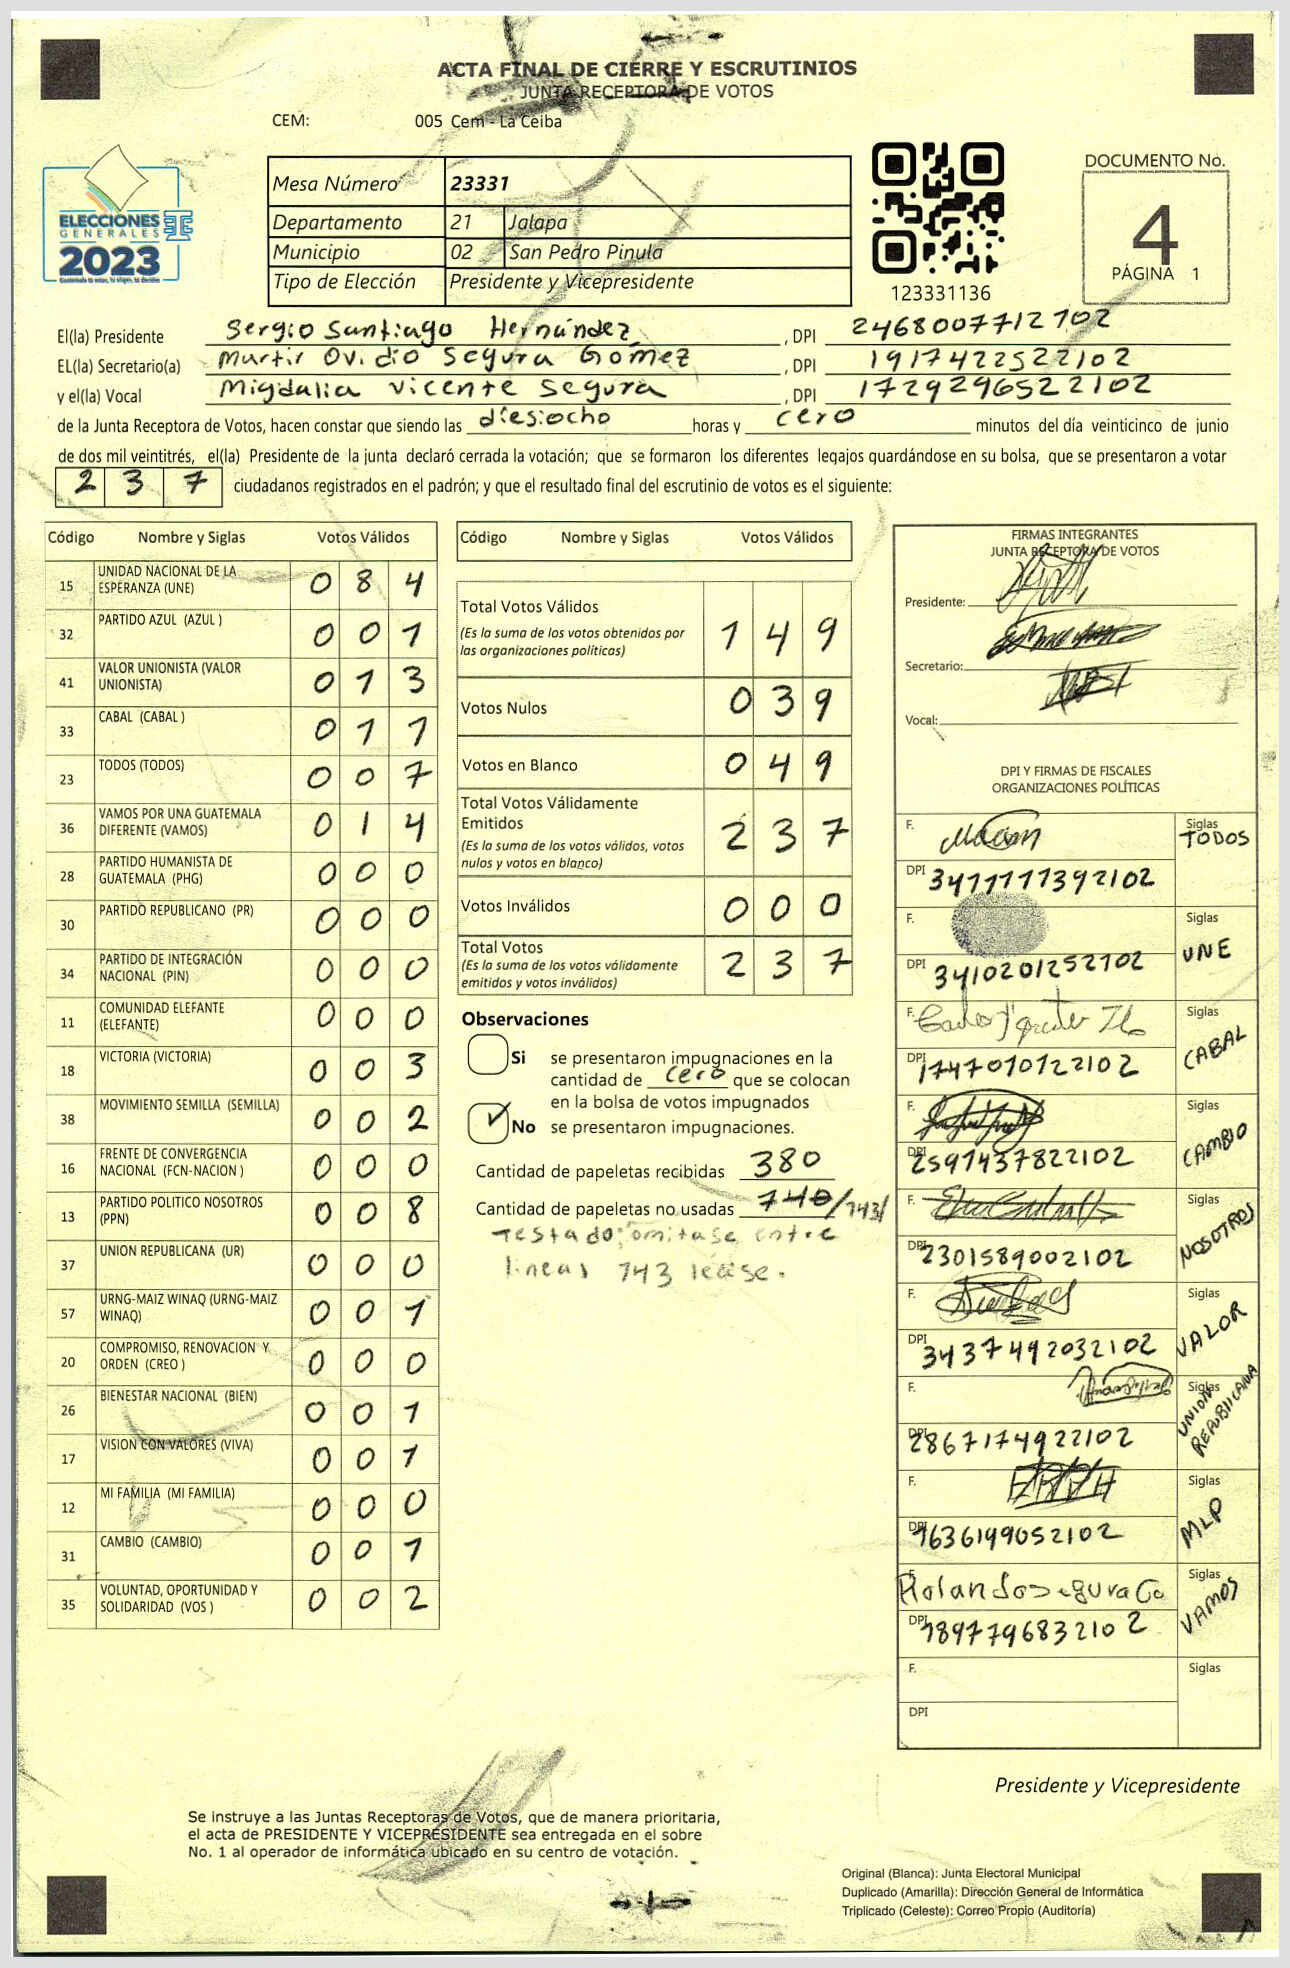 ACTA FINAL DE CIERRE Y ESCRUTINIOS
JUNTA RECEPTORA DE VOTOS
CEM: 005 Cem - La Ceiba
ELECCIONES
GENERALES
2023
Mesa Número 23331
Departamento 21 Jalapa
Municipio 02 San Pedro Pinula
Tipo de Elección Presidente y Vicepresidente
123331136
DOCUMENTO No.
4
PÁGINA 1
El(la) Presidente Sergio Santiago Hernández, DPI 2468007712102
EL(la) Secretario(a) Martir Ovidio Segura Gómez, DPI 1917422522102
y el(la) Vocal Migdalia Vicente Segura, DPI 1729296522102
de la Junta Receptora de Votos, hacen constar que siendo las diesiocho horas y cero minutos del día veinticinco de junio
de dos mil veintitrés, el(la) Presidente de la junta declaró cerrada la votación; que se formaron los diferentes legajos guardándose en su bolsa, que se presentaron a votar
237 ciudadanos registrados en el padrón; y que el resultado final del escrutinio de votos es el siguiente:
Código Nombre y Siglas Votos Válidos
15 UNIDAD NACIONAL DE LA ESPERANZA (UNE) 084
32 PARTIDO AZUL (AZUL ) 001
41 VALOR UNIONISTA (VALOR UNIONISTA) 013
33 CABAL (CABAL ) 011
23 TODOS (TODOS) 007
36 VAMOS POR UNA GUATEMALA DIFERENTE (VAMOS) 014
28 PARTIDO HUMANISTA DE GUATEMALA (PHG) 000
30 PARTIDO REPUBLICANO (PR) 000
34 PARTIDO DE INTEGRACIÓN NACIONAL (PIN) 000
11 COMUNIDAD ELEFANTE (ELEFANTE) 000
18 VICTORIA (VICTORIA) 003
38 MOVIMIENTO SEMILLA (SEMILLA) 002
16 FRENTE DE CONVERGENCIA NACIONAL (FCN-NACION ) 000
13 PARTIDO POLITICO NOSOTROS (PPN) 008
37 UNION REPUBLICANA (UR) 000
57 URNG-MAIZ WINAQ (URNG-MAIZ WINAQ) 001
20 COMPROMISO, RENOVACION Y ORDEN (CREO ) 000
26 BIENESTAR NACIONAL (BIEN) 001
17 VISION CON VALORES (VIVA) 001
12 MI FAMILIA (MI FAMILIA) 000
31 CAMBIO (CAMBIO) 001
35 VOLUNTAD, OPORTUNIDAD Y SOLIDARIDAD (VOS ) 002
Código Nombre y Siglas Votos Válidos
Total Votos Válidos 149
(Es la suma de los votos obtenidos por
las organizaciones políticas)
Votos Nulos 039
Votos en Blanco 049
Total Votos Válidamente
Emitidos 237
(Es la suma de los votos válidos, votos
nulos y votos en blanco)
Votos Inválidos 000
Total Votos 237
(Es la suma de los votos válidamente
emitidos y votos inválidos)
Observaciones
Si se presentaron impugnaciones en la
cantidad de cero que se colocan
en la bolsa de votos impugnados
No se presentaron impugnaciones.
Cantidad de papeletas recibidas 380
Cantidad de papeletas no usadas 740/143/
Testado: omitase entre
lineas 143 lease.
FIRMAS INTEGRANTES
JUNTA RECEPTORA DE VOTOS
Presidente:
Secretario:
Vocal:
DPI Y FIRMAS DE FISCALES
ORGANIZACIONES POLÍTICAS
F. Siglas TODOS
DPI 3411111392102
F. Siglas UNE
DPI 3410201252102
F. Siglas CABAL
DPI 1747070122102
F. Siglas CAMBIO
DPI 2591437822102
F. Siglas NOSOTROS
DPI 2301589002102
F. Siglas VALOR
DPI 3437492032102
F. Siglas UNION REPUBLICANA
DPI 2867174922102
F. Siglas MLP
DPI 1636149052102
F. Rolando Segura Go Siglas VAMOS
DPI 1897796832102
F. Siglas
DPI
Presidente y Vicepresidente
Se instruye a las Juntas Receptoras de Votos, que de manera prioritaria,
el acta de PRESIDENTE Y VICEPRESIDENTE sea entregada en el sobre
No. 1 al operador de informática ubicado en su centro de votación.
Original (Blanca): Junta Electoral Municipal
Duplicado (Amarilla): Dirección General de Informática
Triplicado (Celeste): Correo Propio (Auditoría)